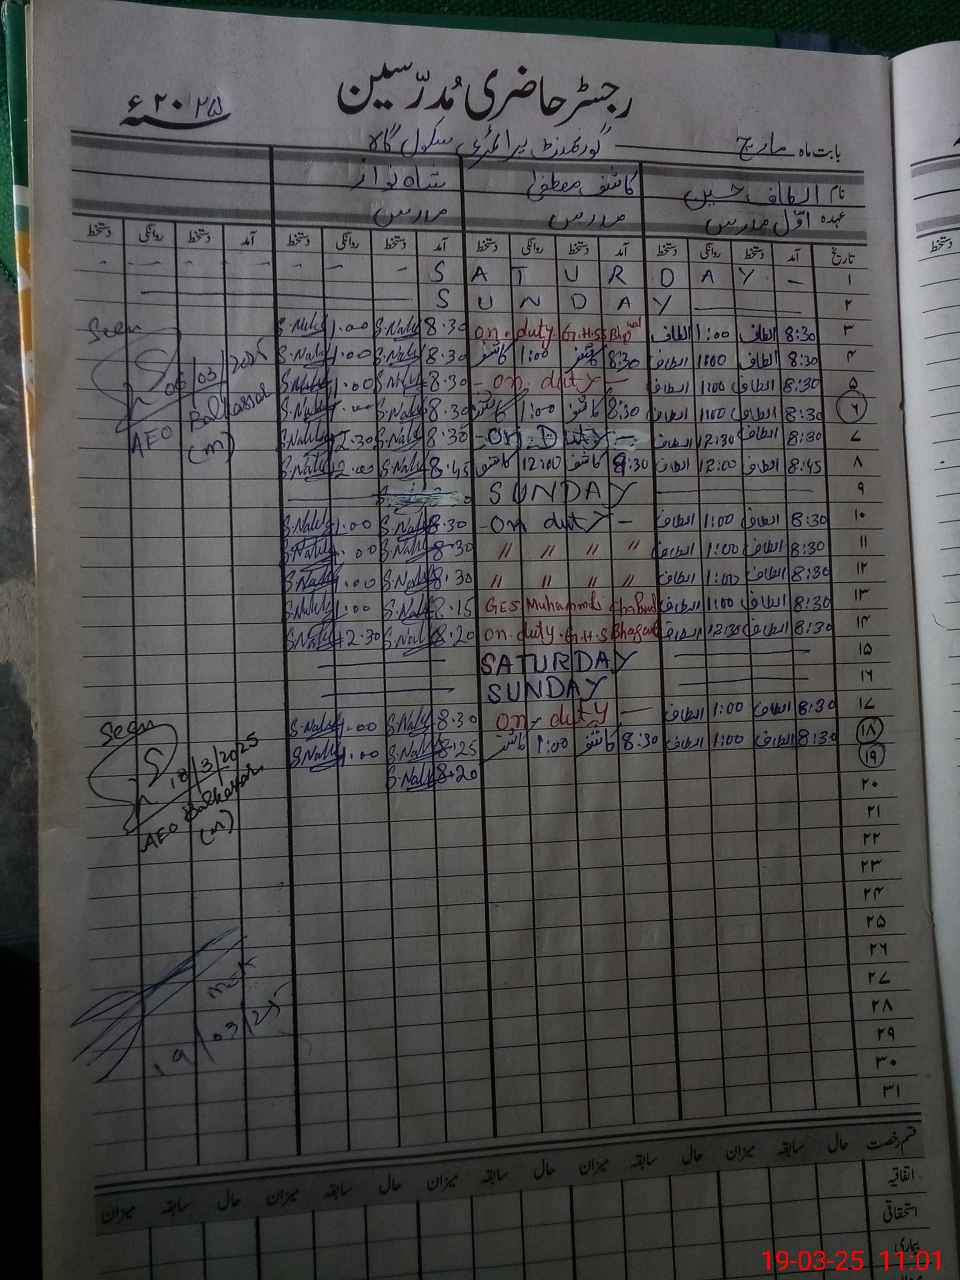 رجسٹر حاضری مُدرّسین
۲۰۲۵ء
بابت ماہ مارچ گورنمنٹ پرائمری سکول
نام الطاف حسین کاشف مصطفیٰ شاہ نواز
عہدہ اوّل مدرس مدرس مدرس
تاریخ آمد دستخط روانگی دستخط آمد دستخط روانگی دستخط آمد دستخط روانگی دستخط آمد دستخط روانگی دستخط
۱ SATURDAY
۲ SUNDAY
۳ 8:30 الطاف 1:00 الطاف on duty G.H.SS 8.30 S.Nale 1.00 S.Nale
۴ 8:30 الطاف 1:00 الطاف 8:30 کاشف 1:00 کاشف 8.30 S.Nale 1.00 S.Nale
۵ 8:30 الطاف 1:00 الطاف - on duty - 8.30 S.Nale 1.00 S.Nale
۶ 8:30 الطاف 1:00 الطاف 8:30 کاشف 1:00 کاشف 8.30 S.Nale 1.00 S.Nale
۷ 8:30 الطاف 12:30 الطاف - On Duty - 8.30 S.Nale 12.30 S.Nale
۸ 8:45 الطاف 12:00 الطاف 8:30 کاشف 12:00 کاشف 8.45 S.Nale 12.00 S.Nale
۹ SUNDAY
۱۰ 8:30 الطاف 1:00 الطاف - on duty - 8.30 S.Nale 1.00 S.Nale
۱۱ 8:30 الطاف 1:00 الطاف " " " " 8.30 S.Nale 1.00 S.Nale
۱۲ 8:30 الطاف 1:00 الطاف " " " " 8.30 S.Nale 1.00 S.Nale
۱۳ 8:30 الطاف 1:00 الطاف GES Muhammad 8.15 S.Nale 1.00 S.Nale
۱۴ 8:30 الطاف 12:30 الطاف on duty G.H.S 8.20 S.Nale 12.30 S.Nale
۱۵ SATURDAY
۱۶ SUNDAY
۱۷ 8:30 الطاف 1:00 الطاف on duty - 8.30 S.Nale 1.00 S.Nale
۱۸ 8:30 الطاف 1:00 الطاف 8:30 کاشف 1:00 کاشف 8.25 S.Nale 1.00 S.Nale
۱۹ 8.20 S.Nale
۲۰
۲۱
۲۲
۲۳
۲۴
۲۵
۲۶
۲۷
۲۸
۲۹
۳۰
۳۱
Seen
06/03/2025
AEO Balkassar
(m)
Seen
18/3/2025
AEO Balkassar
(m)
19/03/25
قسم رخصت حال سابقہ میزان حال سابقہ میزان حال سابقہ میزان حال سابقہ میزان
اتفاقیہ
استحقاقی
بیماری
19-03-25 11:01